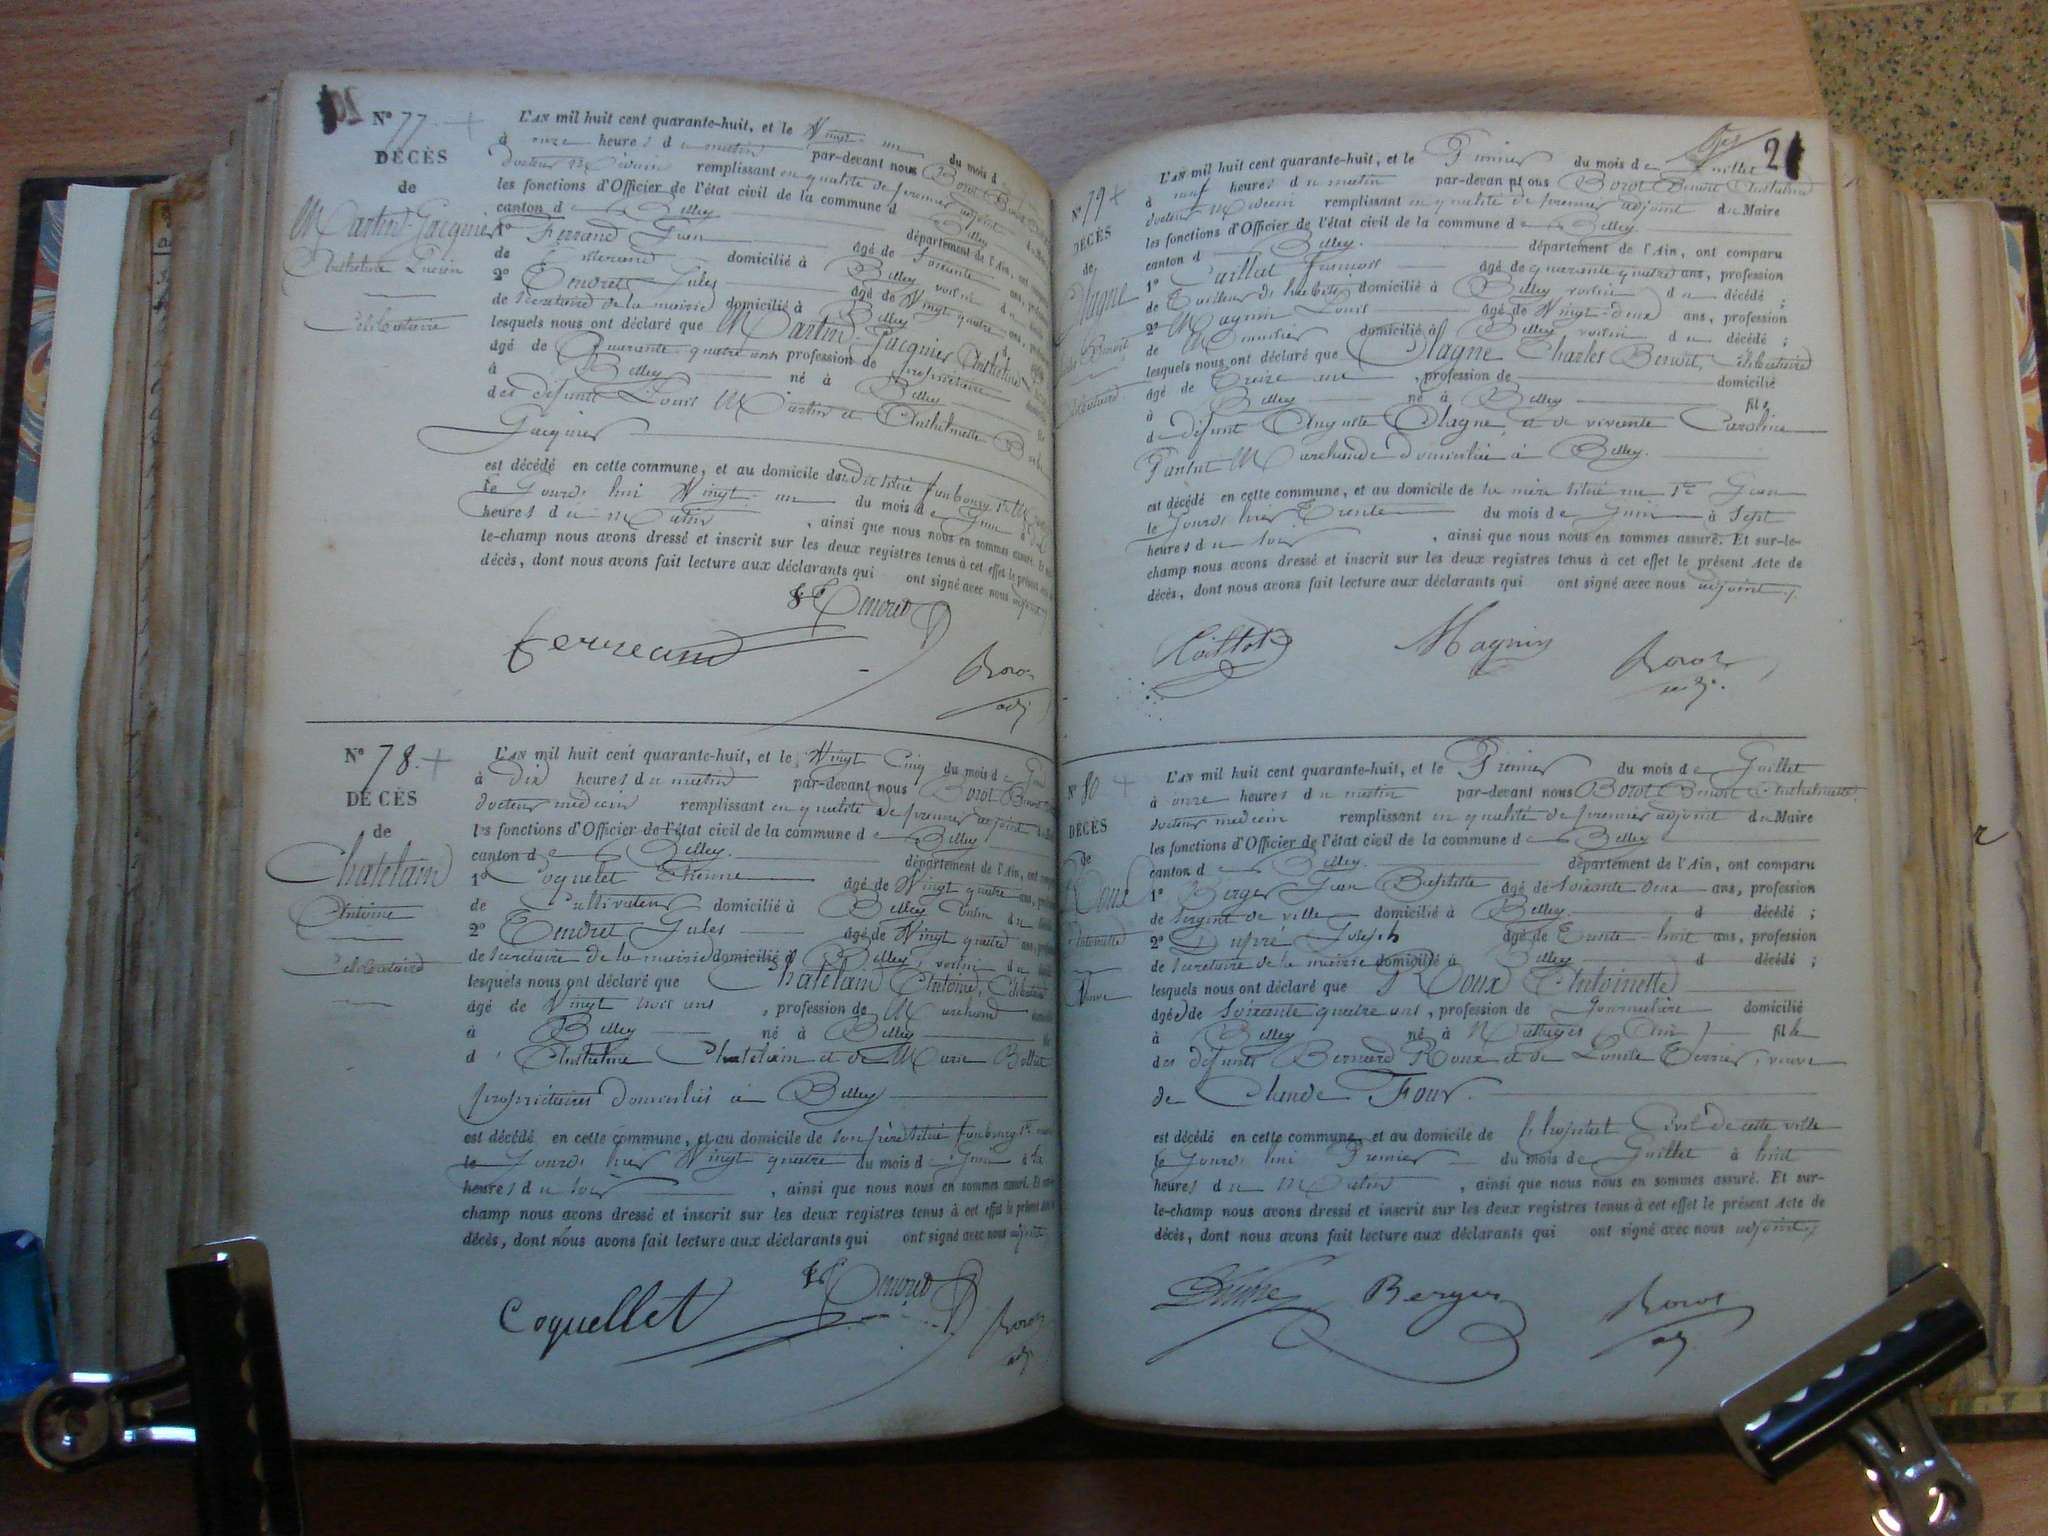 Nº 77
DÉCÈS
de
Martin-Jacquier
Anthelme Lucien
Célibataire
L'AN mil huit cent quarante-huit, et le Vingt-un du mois d
à onze heures du matin par-devant nous Borot Benoit
docteur Médecin remplissant en qualité de premier adjoint
les fonctions d'Officier de l'état civil de la commune d Belley
canton de Belley département de l'Ain, ont comparu
1º Ferrand Jean âgé de soixante ans,
de domicilié à Belley voisin
2º Tendret Jules âgé de Vingt quatre ans,
de Secrétaire de la mairie domicilié à Belley
lesquels nous ont déclaré que Martin-Jacquier Anthelme
âgé de Quarante-quatre ans profession de propriétaire
à Belley né à Belley
des défunts Louis Martin et Anthelmette
Jacquier
est décédé en cette commune, et au domicile du dit situé faubourg
le Jourd'hui Vingt-un du mois de Juin à
heures du Matin, ainsi que nous nous en sommes assuré. Et
le-champ nous avons dressé et inscrit sur les deux registres tenus à cet effet le présent
décès, dont nous avons fait lecture aux déclarants qui ont signé avec nous adjoint
Tendret
Ferrand
Borot
adj
Nº 78
DÉCÈS
de
Chatelain
Antoine
Célibataire
L'AN mil huit cent quarante-huit, et le Vingt Cinq du mois de Juin
à Dix heures du matin par-devant nous Borot Benoit
docteur médecin remplissant en qualité de premier adjoint
les fonctions d'Officier de l'état civil de la commune de Belley
canton de Belley département de l'Ain, ont
1º Coquelet Etienne âgé de Vingt quatre ans,
de Cultivateur domicilié à Belley voisin du
2º Tendret Jules âgé de Vingt quatre ans,
de Secrétaire de la mairie domicilié à Belley, voisin du
lesquels nous ont déclaré que Chatelain Antoine, Célibataire
âgé de Vingt trois ans, profession de Marchand
à Belley né à Belley
d'Anthelme Chatelain et de Marie
propriétaires domiciliés à Belley
est décédé en cette commune, et au domicile de son père situé faubourg
le Jourd'hier Vingt quatre du mois de Juin à
heures du soir, ainsi que nous nous en sommes assuré. Et
champ nous avons dressé et inscrit sur les deux registres tenus à cet effet le présent
décès, dont nous avons fait lecture aux déclarants qui ont signé avec nous adjoint
Tendret
Coquellet
Borot
adj
2
Nº 79
DÉCÈS
de
Plagne
Charles Benoit
Célibataire
L'AN mil huit cent quarante-huit, et le Premier du mois de Juillet
à neuf heures du matin par-devant nous Borot Benoit Anthelme
docteur Médecin remplissant en qualité de premier adjoint du Maire
les fonctions d'Officier de l'état civil de la commune de Belley
canton d Belley. département de l'Ain, ont comparu
1º Caillat François âgé de quarante quatre ans, profession
de Tailleur de habits domicilié à Belley voisin du décédé ;
2º Magnin Louis âgé de Vingt-deux ans, profession
de Menuisier domicilié à Belley voisin du décédé ;
lesquels nous ont déclaré que Plagne Charles Benoit, Célibataire
âgé de Treize ans, profession de domicilié
à Belley né à Belley fils
de défunt Auguste Plagne, et de vivante Caroline
Marchande domiciliée à Belley.
est décédé en cette commune, et au domicile de sa mère situé rue St Jean
le Jourd'hier Trente du mois de Juin à Sept
heures du soir, ainsi que nous nous en sommes assuré. Et sur-le-
champ nous avons dressé et inscrit sur les deux registres tenus à cet effet le présent Acte de
décès, dont nous avons fait lecture aux déclarants qui ont signé avec nous adjoint
Magnin
Borot
adj.
Nº 80
DÉCÈS
de
Roux
Antoinette
Veuve
L'AN mil huit cent quarante-huit, et le Premier du mois de Juillet
à onze heures du matin par-devant nous Borot Benoit Anthelme
docteur médecin remplissant en qualité de premier adjoint du Maire
les fonctions d'Officier de l'état civil de la commune de Belley
canton de Belley. département de l'Ain, ont comparu
1º Berger Jean Baptiste âgé de soixante deux ans, profession
de Sergent de ville domicilié à Belley d décédé ;
2º Dupré Joseph âgé de Trente-huit ans, profession
de Secrétaire de la mairie domicilié à Belley d décédé ;
lesquels nous ont déclaré que Roux Antoinette
âgée de soixante quatre ans, profession de Journalière domicilié
à Belley né à (Ain) fille
des défunts Bernard Roux et de Louise Terrier, veuve
de Claude Four.
est décédé en cette commune, et au domicile de l'hopital Civil de cette ville
le Jourd'hui Premier du mois de Juillet à huit
heures du Matin, ainsi que nous nous en sommes assuré. Et sur-
le-champ nous avons dressé et inscrit sur les deux registres tenus à cet effet le présent Acte de
décès, dont nous avons fait lecture aux déclarants qui ont signé avec nous adjoint
Berger
Borot
adj